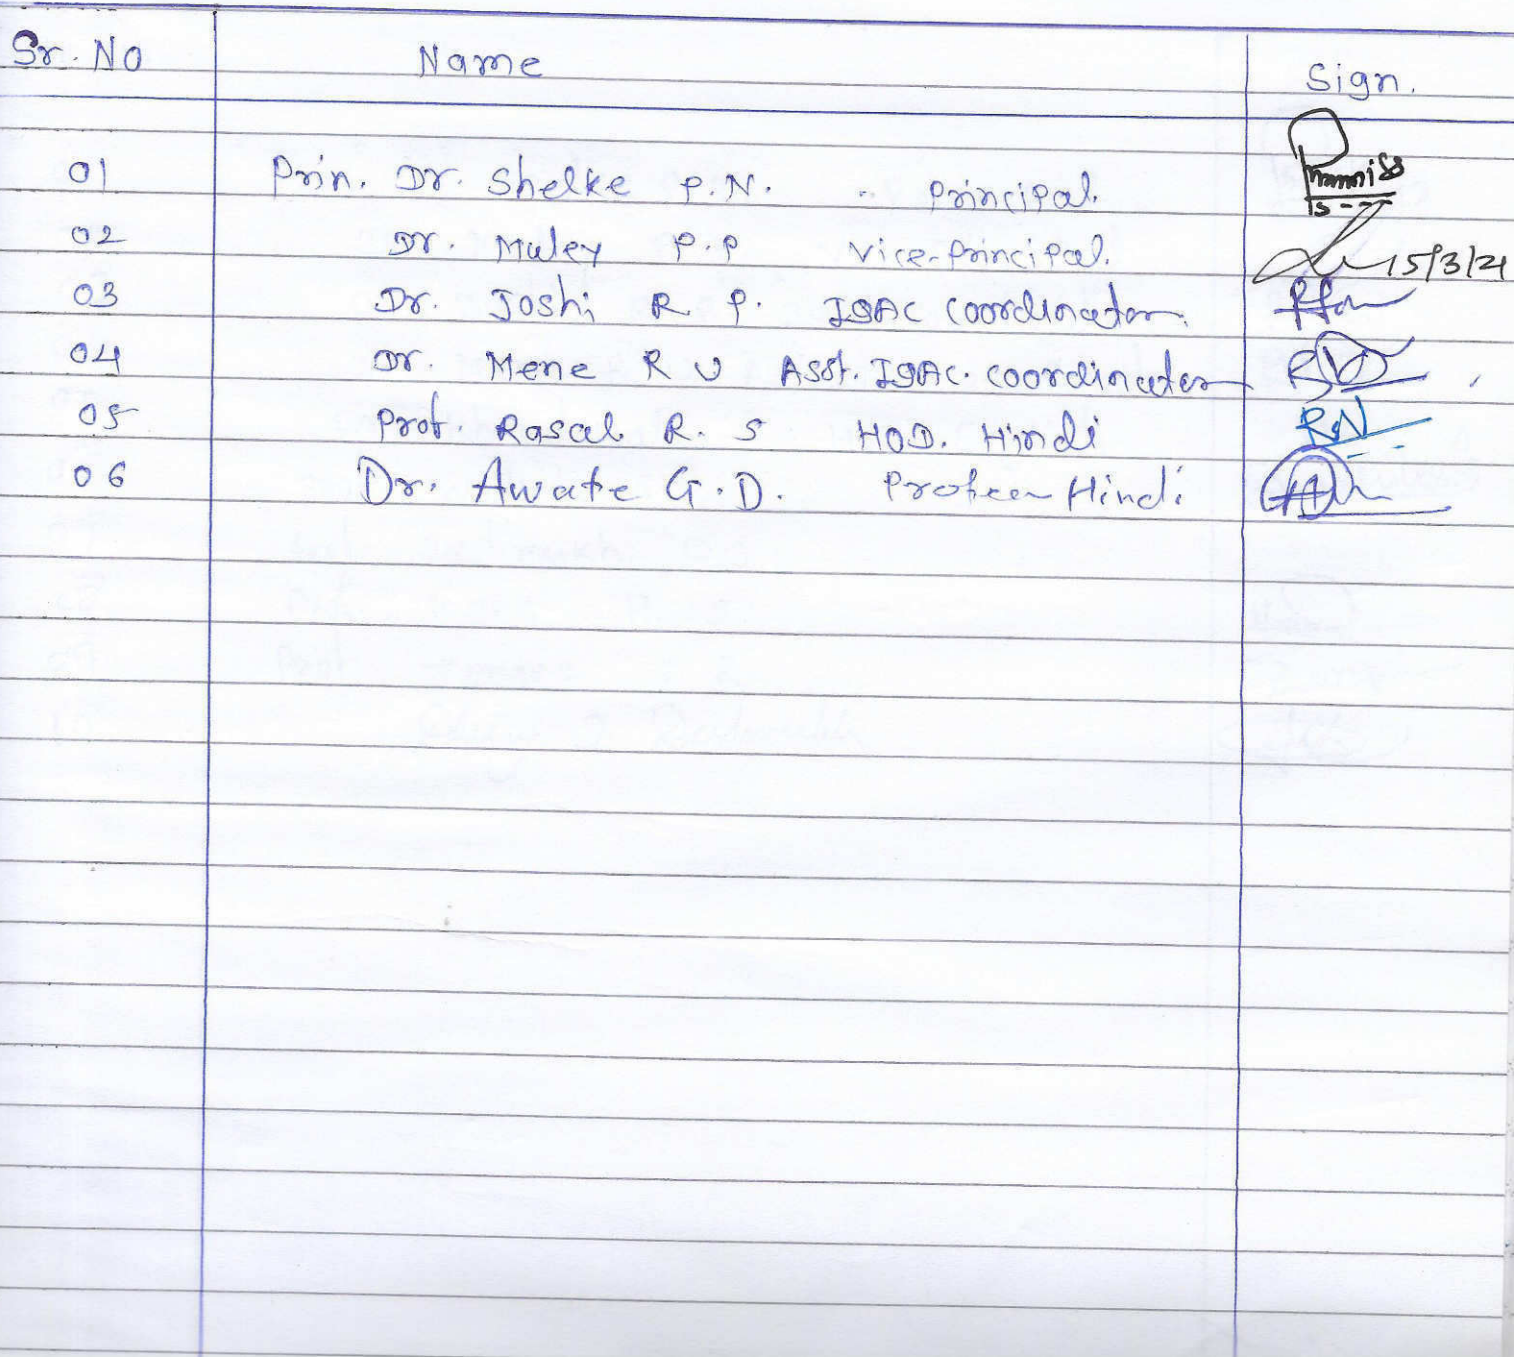 Sr. No Name Sign.
01 Prin. Dr. Shelke P.N. - Principal.
02 Dr. Muley P.P Vice-Principal. 15/3/21
03 Dr. Joshi R P. IQAC Coordinator.
04 Dr. Mene R V Asst. IQAC. Coordinator
05 Prof. Rasal R. S HOD. Hindi RN
06 Dr. Awate G.D. Hindi